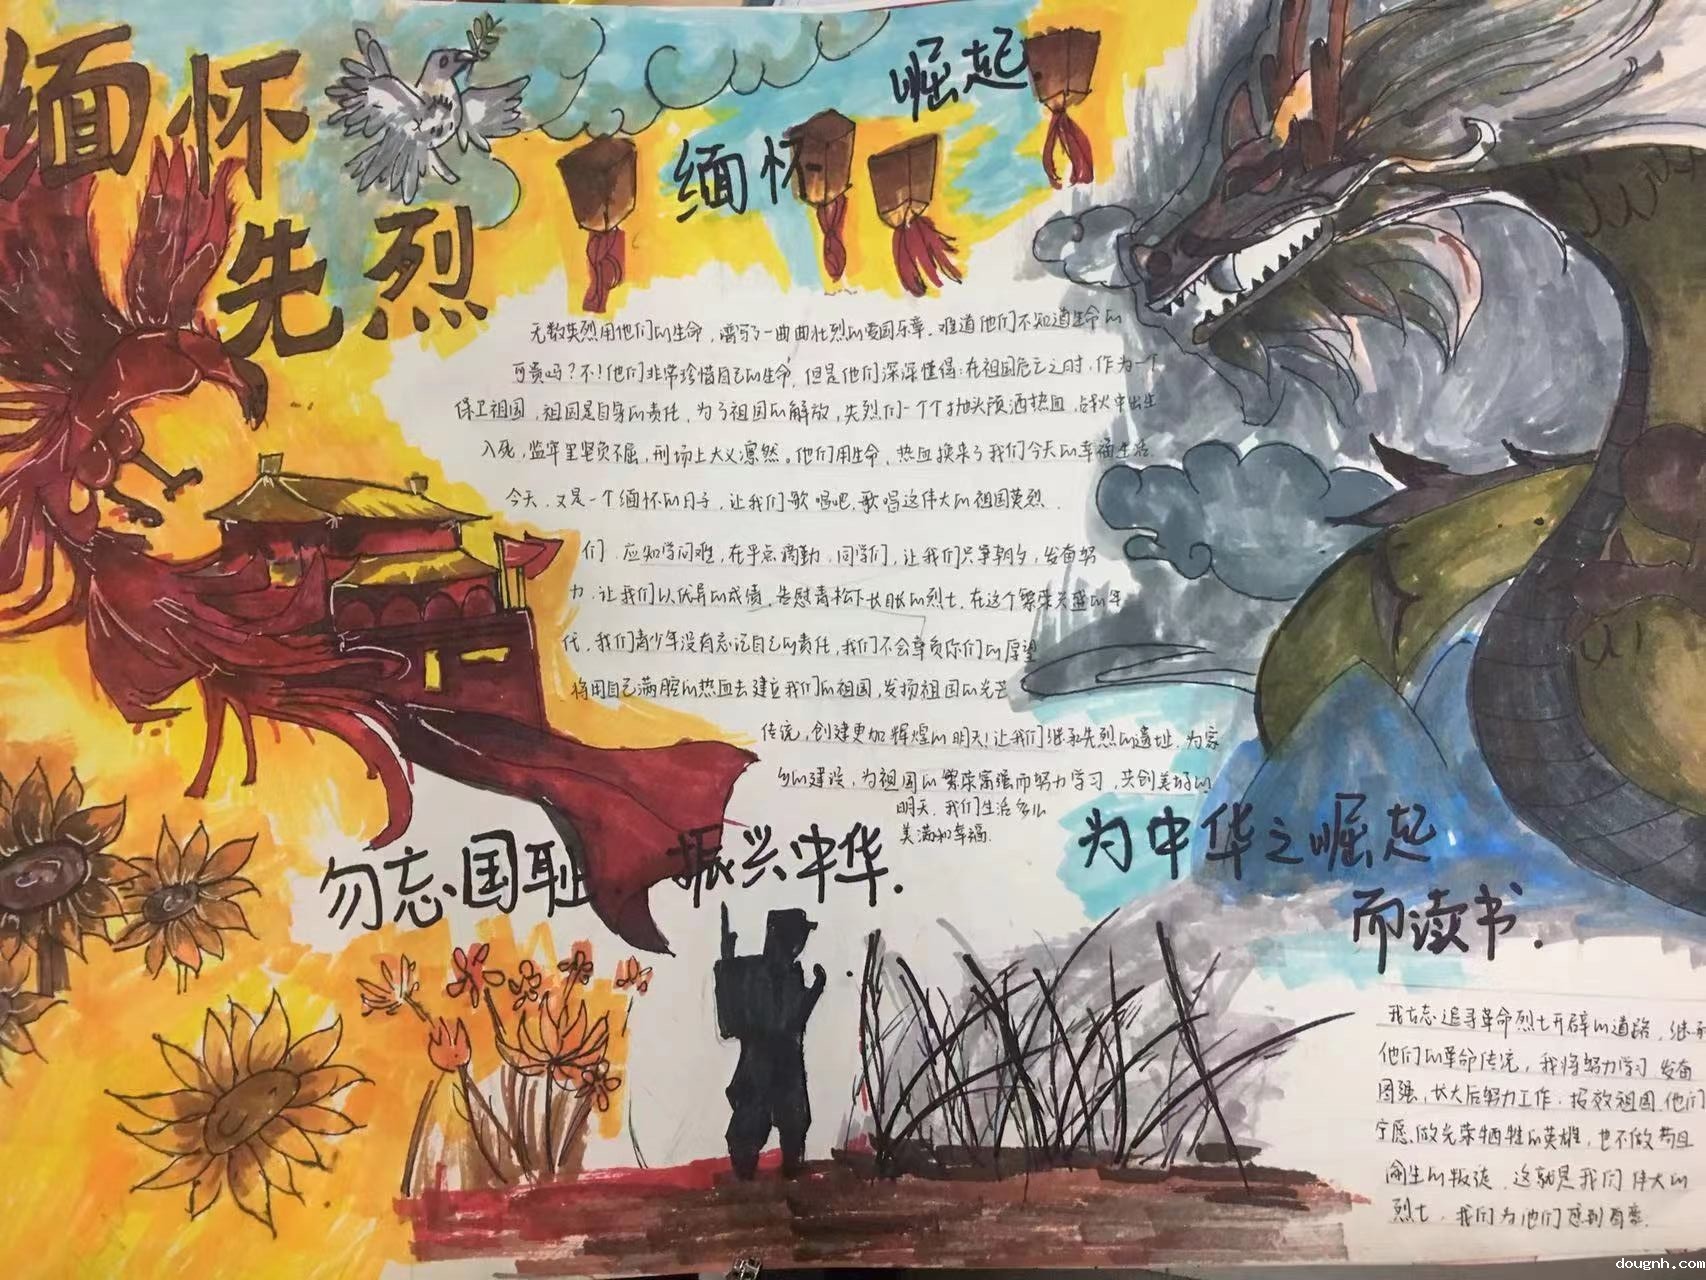 缅怀
先烈
崛起
缅怀
无数先烈用他们的生命，谱写了一曲曲壮烈的爱国乐章。难道他们不知道生命的
可贵吗？不！他们非常珍惜自己的生命，但是他们深深懂得：在祖国危亡之时，作为一个
保卫祖国，祖国是自身的责任，为了祖国的解放，先烈们一个个抛头颅洒热血，战火中出生
入死，监牢里坚贞不屈，刑场上大义凛然。他们用生命、热血换来了我们今天的幸福生活.
今天，又是一个缅怀的日子，让我们歌唱吧，歌唱这伟大的祖国英烈.
们，应知学问难，在乎点滴勤，同学们，让我们只争朝夕，发奋努
力，让我们以优异的成绩，告慰青松下长眠的烈士，在这个繁荣 盛的年
代，我们青少年没有忘记自己的责任，我们不会辜负你们的厚望
将用自己满腔的热血去建立我们的祖国，发扬祖国的光芒
传统，创建更加辉煌的明天！让我们继承先烈的遗址，为家
乡的建设，为祖国的繁荣富强而努力学习，共创美好的
明天，我们生活多么
美满和幸福.
勿忘国耻 振兴中华.
为中华之崛起
而读书.
我 志追寻革命烈士开辟的道路，继承
他们的革命传统，我将努力学习，发奋
图强，长大后努力工作，报效祖国，他们
宁愿做光荣牺牲的英雄，也不做苟且
偷生的叛徒，这就是我们伟大的
烈士，我们为他们感到自豪.
dougnh.com